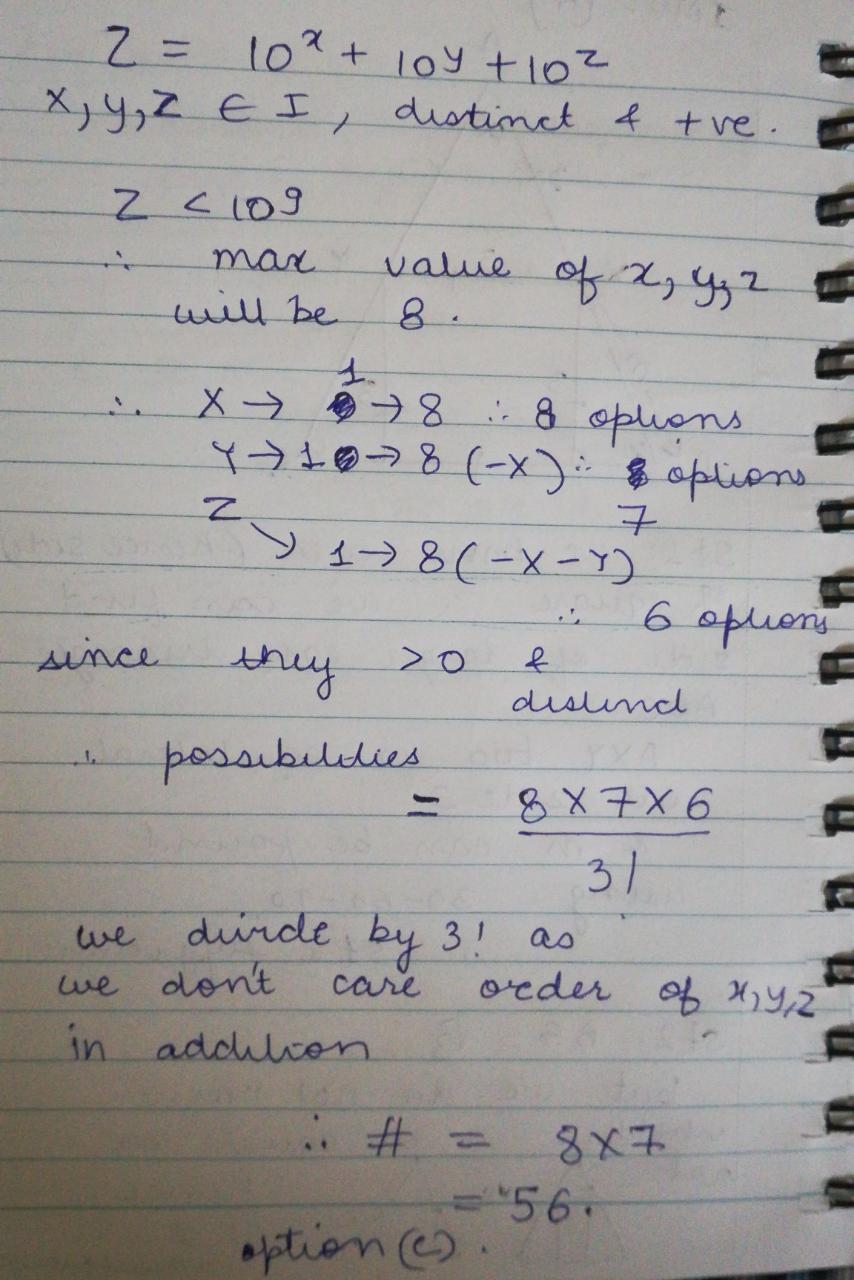 Z = 10^x + 10^y + 10^z
x, y, z ∈ I, distinct & +ve.
Z < 10^9
∴ max value of x, y, z
will be 8.
∴ X → 1 → 8 ∴ 8 options
Y → 1 → 8 (-X) ∴ 7 options
Z
↘ 1 → 8 (-X - Y)
∴ 6 options
since they > 0 &
distinct
∴ possibilities
= 8 X 7 X 6 / 3!
we divide by 3! as
we don't care order of x, y, z
in addition
∴ # = 8X7
= 56.
option (c).